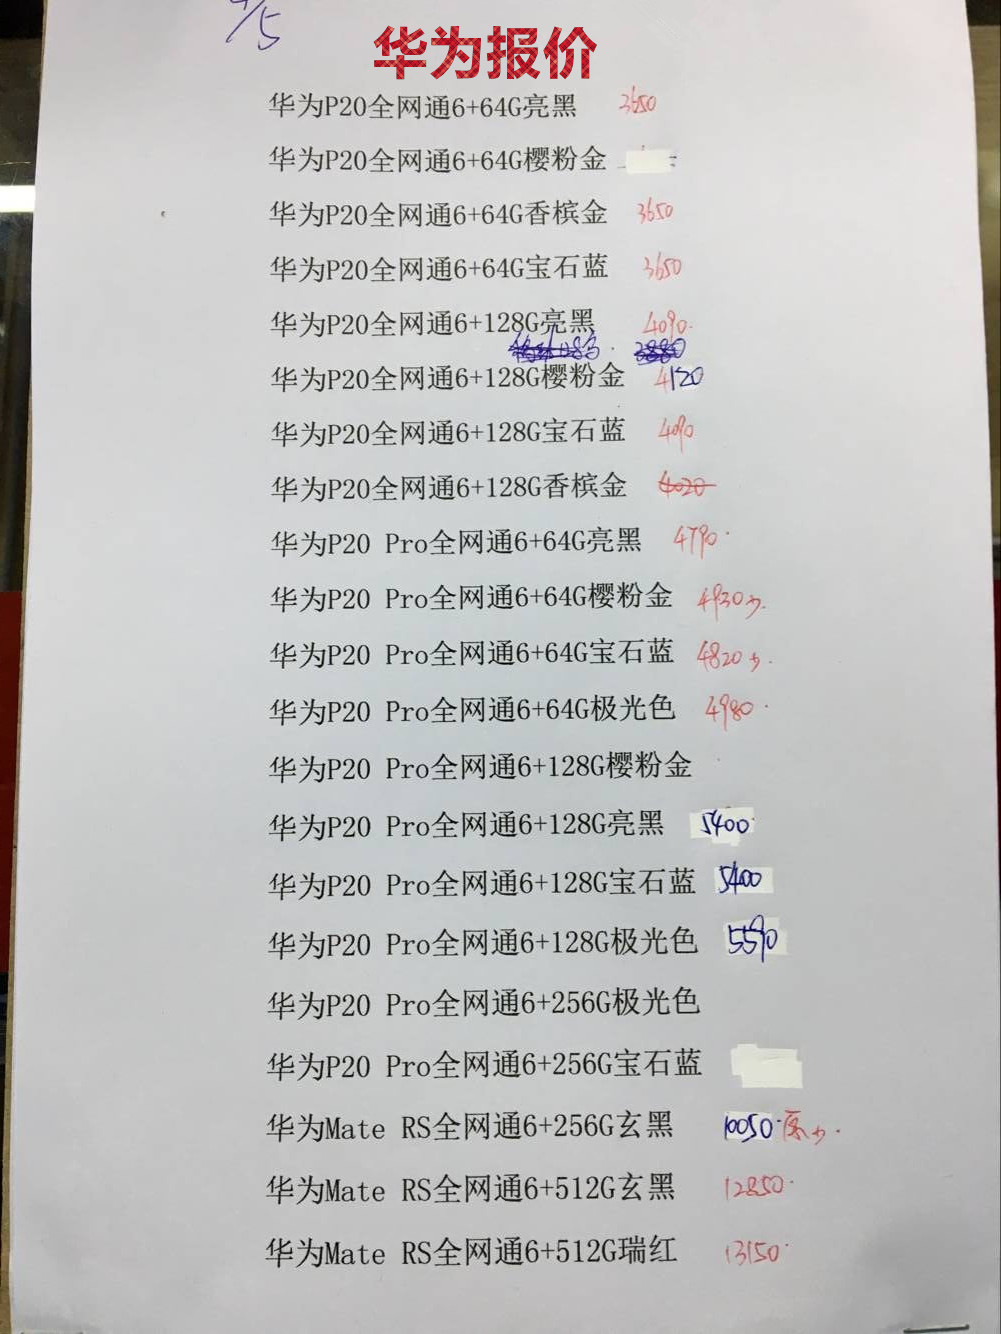 /5
华为报价
华为P20全网通6+64G亮黑 3650
华为P20全网通6+64G樱粉金
华为P20全网通6+64G香槟金 3650
华为P20全网通6+64G宝石蓝 3650
华为P20全网通6+128G亮黑 4090
华为P20全网通6+128G樱粉金 4120
华为P20全网通6+128G宝石蓝 4090
华为P20全网通6+128G香槟金 4020
华为P20 Pro全网通6+64G亮黑 4790
华为P20 Pro全网通6+64G樱粉金 4930少.
华为P20 Pro全网通6+64G宝石蓝 4820少.
华为P20 Pro全网通6+64G极光色 4980
华为P20 Pro全网通6+128G樱粉金
华为P20 Pro全网通6+128G亮黑 5400
华为P20 Pro全网通6+128G宝石蓝 5400
华为P20 Pro全网通6+128G极光色 5590
华为P20 Pro全网通6+256G极光色
华为P20 Pro全网通6+256G宝石蓝
华为Mate RS全网通6+256G玄黑 10050
华为Mate RS全网通6+512G玄黑 12850
华为Mate RS全网通6+512G瑞红 13150